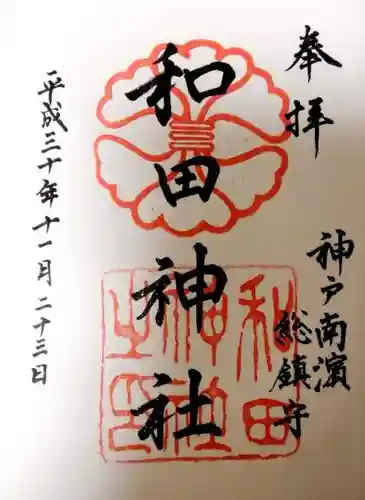 奉拝
神戸南濱
総鎮守
和田神社
和田神社之印
平成三十年十一月二十三日